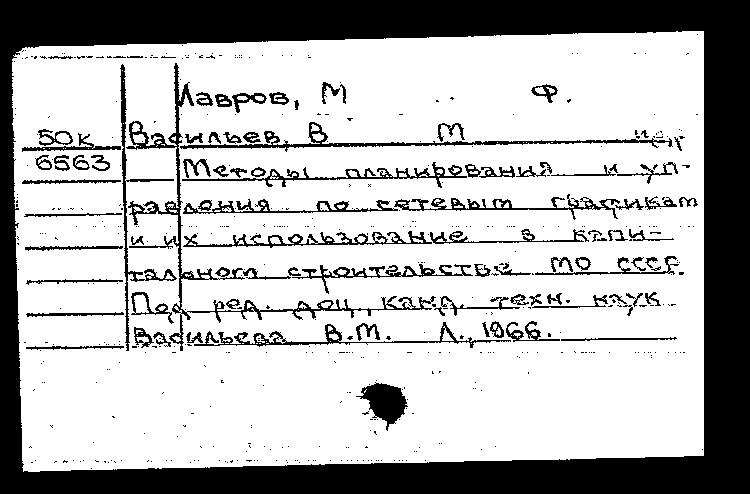 Лавров, М Ф.
50к Васильев, В М и др
6563 Методы планирования и уп-
равления по сетевым графикам
и их использование в капи-
тальном строительстве МО СССР
Под ред. доц., канд. техн. наук
Васильева В.М. Л., 1966.